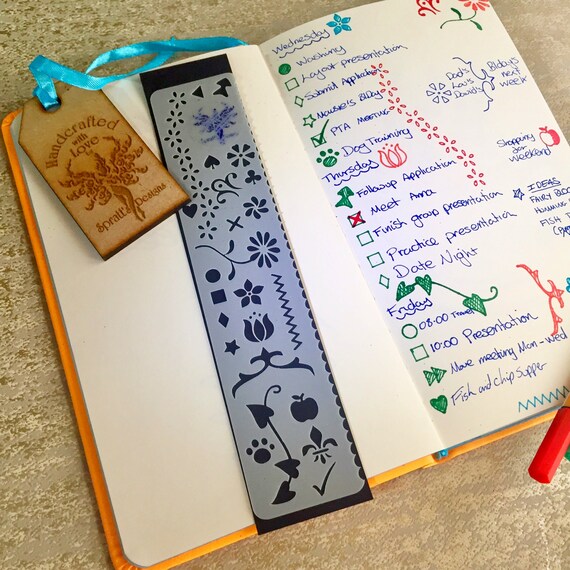 Handcrafted
with
Love
Spratt Designs
Wednesday
Washing
Layout presentation
Submit Application
PTA MEETING
Dog Training
Thursday
Follow up Application
Meet Anna
Finish group presentation
Practice presentation
Date Night
Friday
08:00 Travel
10:00 Presentation
Move meeting Mon - Wed
Fish and chip supper
Dad's
BDays
next
week
Shopping
for
weekend
IDEAS